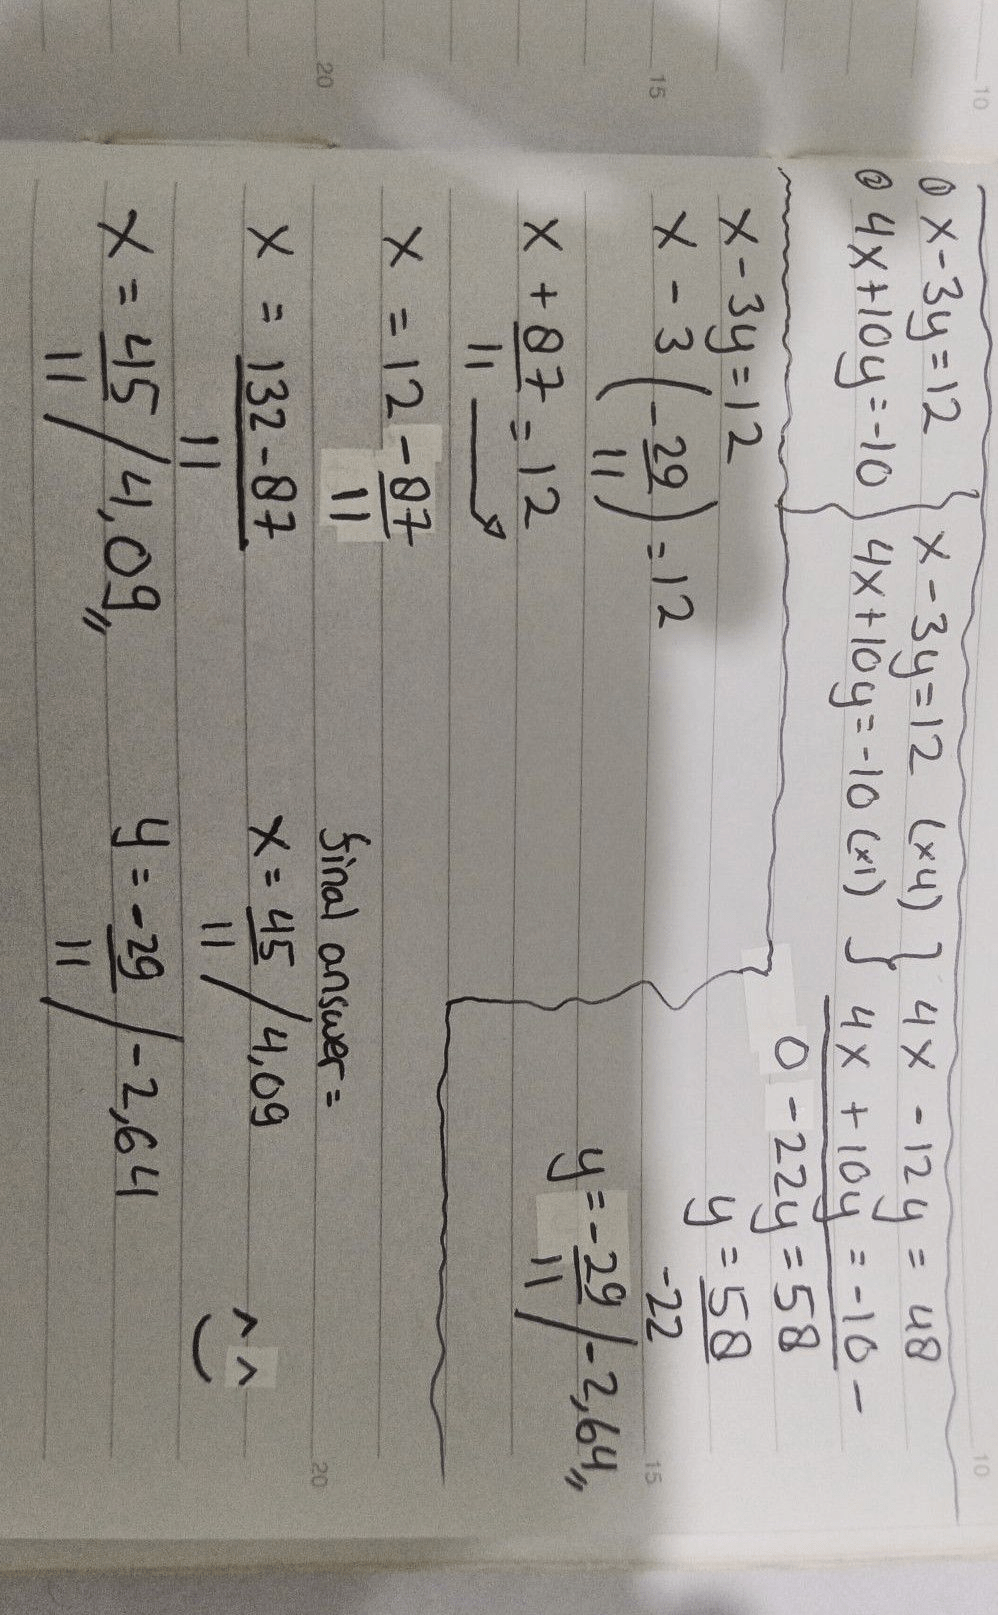 ① x-3y=12 } x-3y=12 (x4) } 4x -12y = 48
② 4x+10y=-10 } 4x+10y=-10 (x1) } 4x +10y = -10 -
0 -22y = 58
y = 58
-22
y = -29/11 / -2,64 "
x-3y=12
x - 3 (-29/11) = 12
x + 87/11 = 12
x = 12 - 87/11
x = 132-87
11
x = 45/11 / 4,09 "
final answer =
x = 45/11 / 4,09
y = -29/11 / -2,64
^ ^
10
15
20
10
15
20